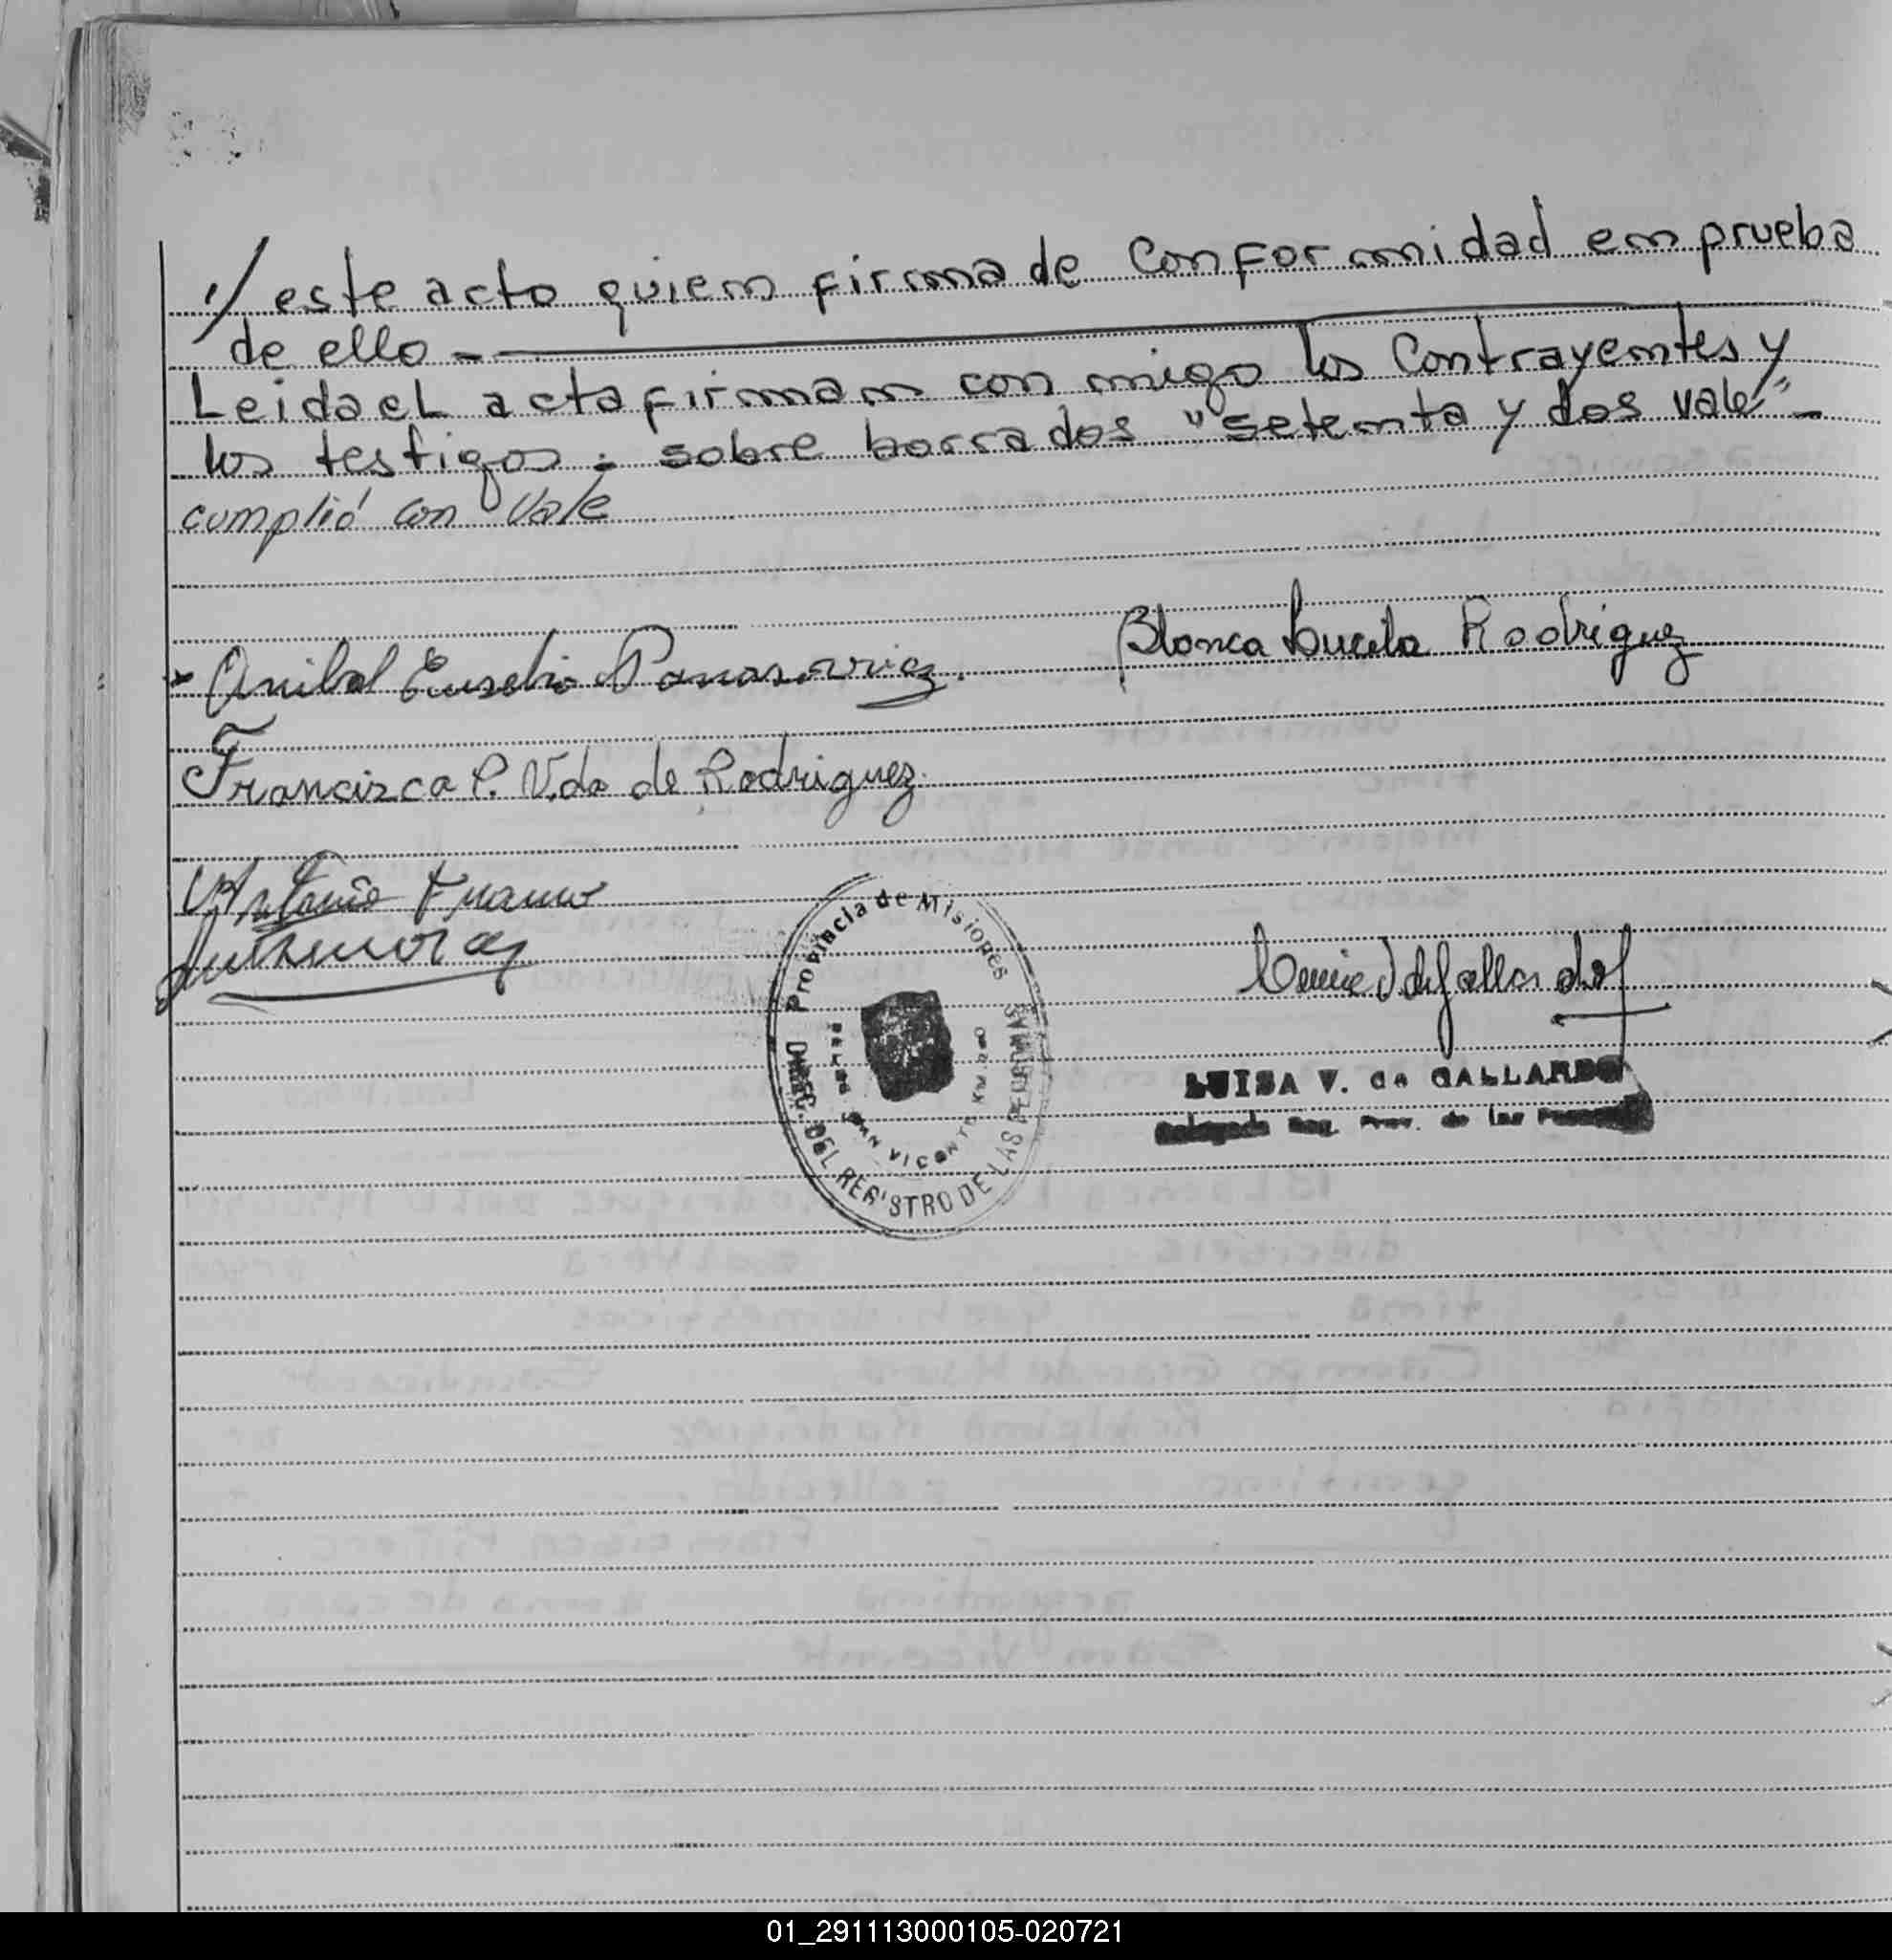 1/ este acto quiem firma de Conformidad em prueba
de ello -
Leida el acta firmam con migo los Contrayemtes y
los testigos - sobre borrados "setemta y dos vale" -
cumplió con Vale
Anibal Eusebio Panasowicz.
Blanca Lucila Rodriguez
Francisca P. Vda de Rodriguez
Antonio Franco
Provincia de Misiones
DIREC. DEL REGISTRO DE LAS PERSONAS
SAN VICENTE
LUISA V. de GALLARDO
Delegada Reg. Prov. de las Personas
01_291113000105-020721